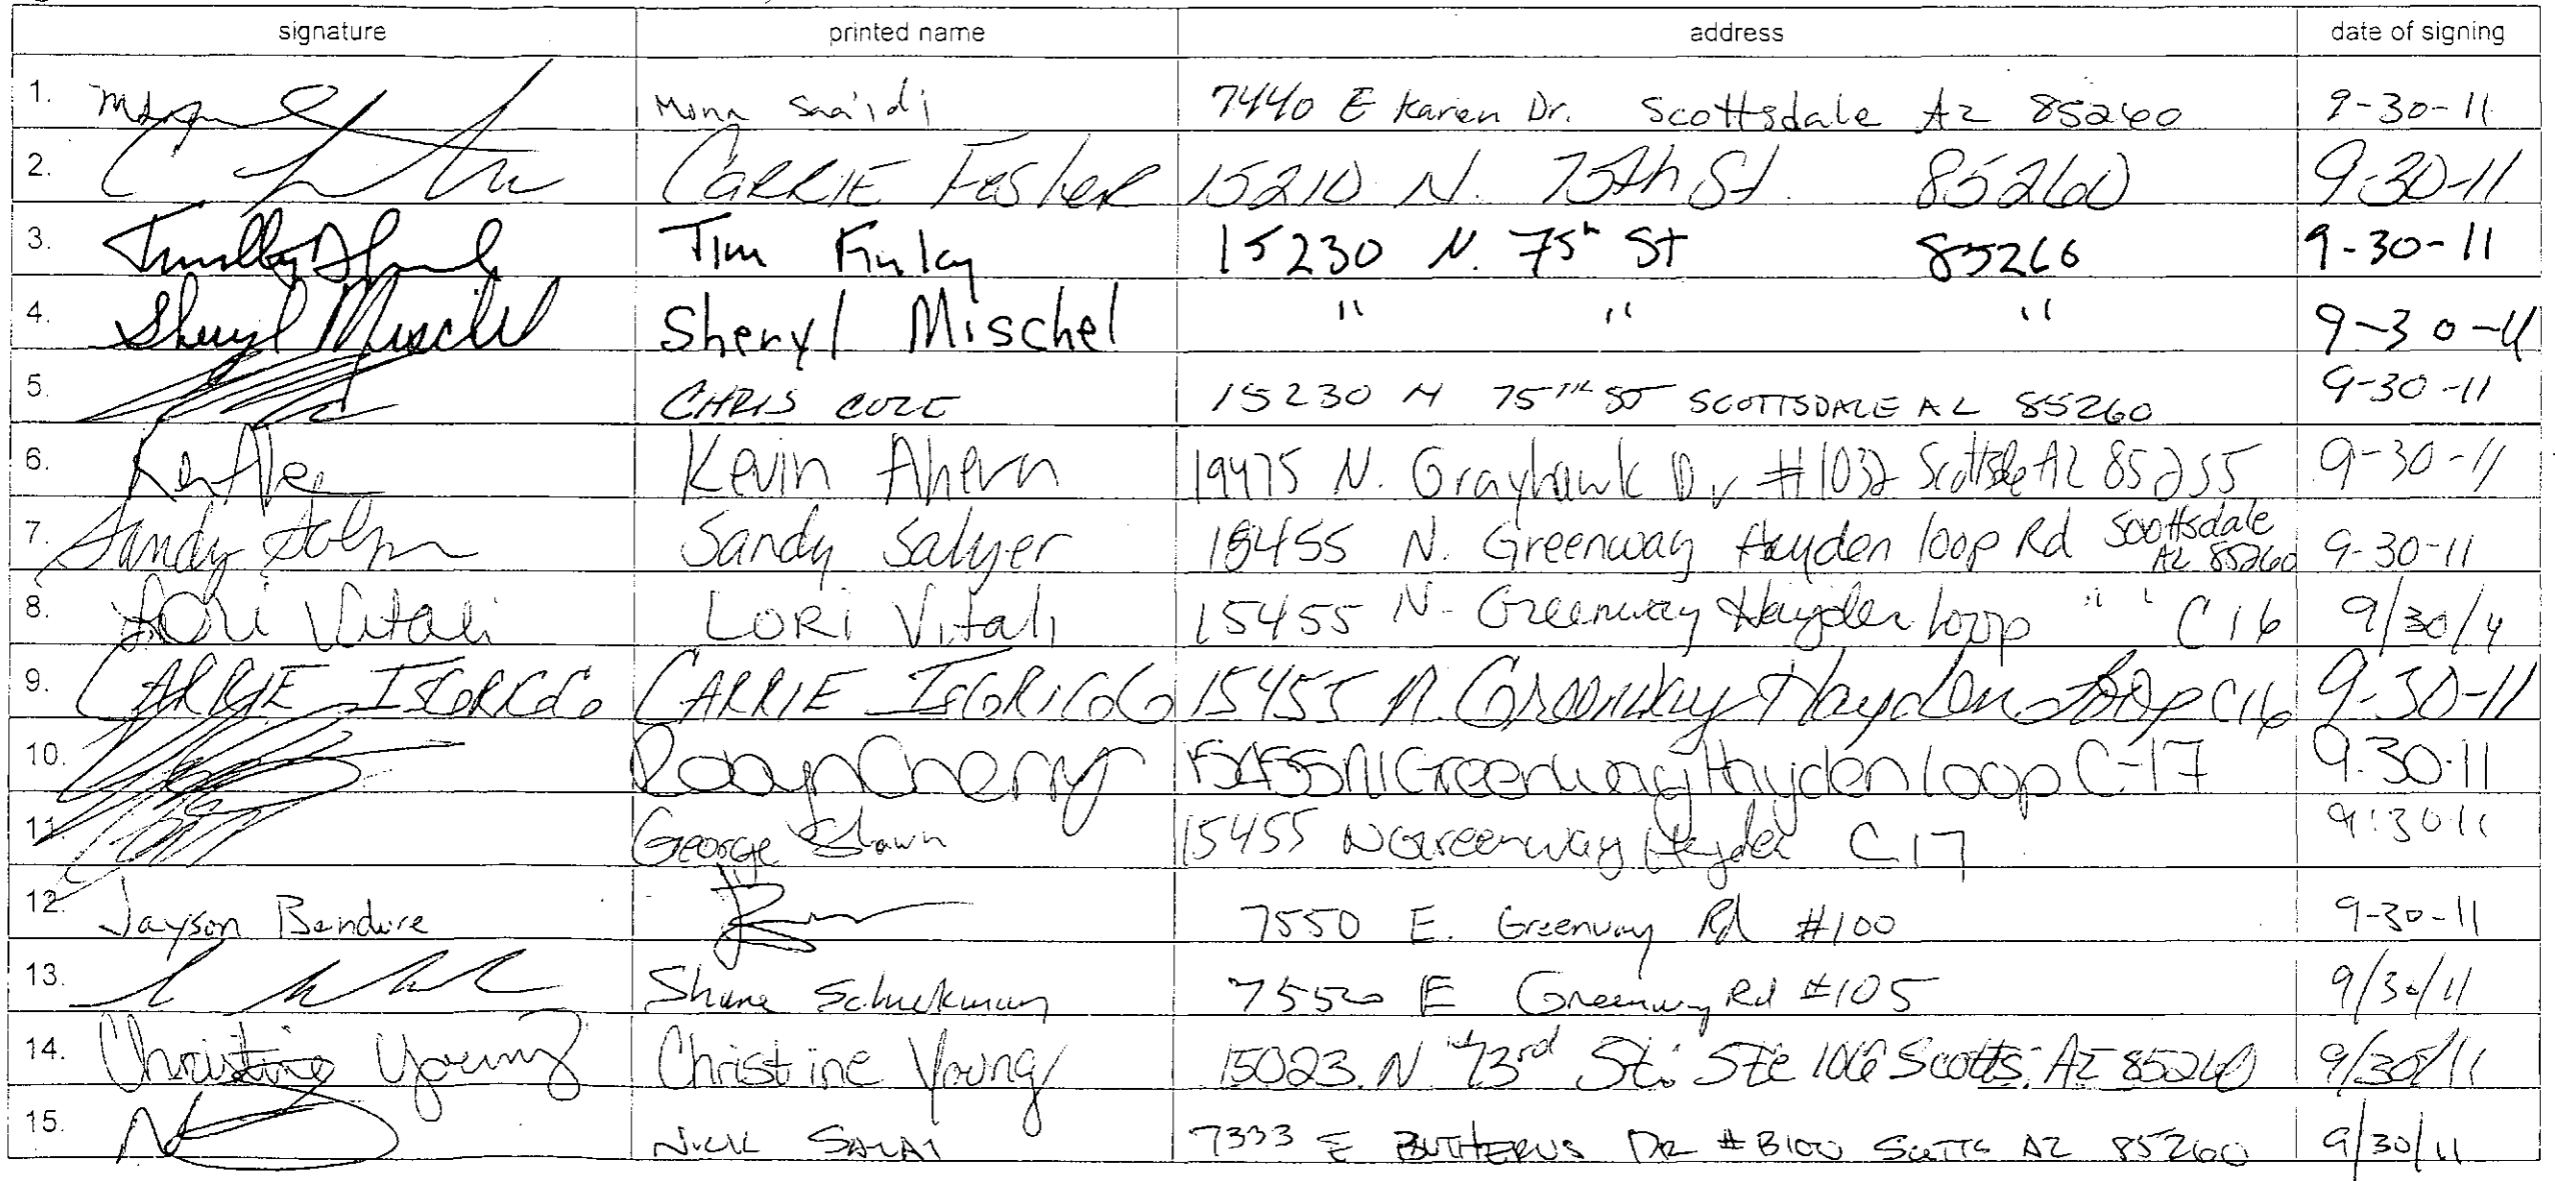 signature printed name address date of signing
1. Mona Saaidi 7440 E Karen Dr. Scottsdale AZ 85260 9-30-11
2. CARRIE 15210 N. 75th St 85260 9-30-11
3. Tim Finley 15230 N. 75th St 85260 9-30-11
4. Sheryl Mischel Sheryl Mischel " " " 9-30-11
5. CHRIS COLE 15230 N 75TH ST SCOTTSDALE AZ 85260 9-30-11
6. Kevin Ahern 19475 N. Grayhawk Dr #1032 AZ 85255 9-30-11
7. Sandy Sandy Salyer N. Greenway Hayden loop Rd Scottsdale AZ 85260 9-30-11
8. Lori Vitali LORi Vitali 15455 N- Greenway Hayden loop " " C16 9/30/11
9. CARRIE CARRIE 15455 N. Greenway Hayden Loop C16 9-30-11
10. Robyn Cherry 15455 N Greenway Hayden loop C-17 9.30.11
11. George 15455 N Greenway Hayden C17 9.30.11
12. Jayson Bendure 7550 E. Greenway Rd #100 9-30-11
13. Shane 7550 E Greenway Rd #105 9/30/11
14. Christine Young Christine Young 15023 N 73rd St. Ste 106 Scotts. AZ 85260 9/30/11
15. Nick 7333 E BUTHERUS DR #B100 SCOTTS AZ 85260 9/30/11